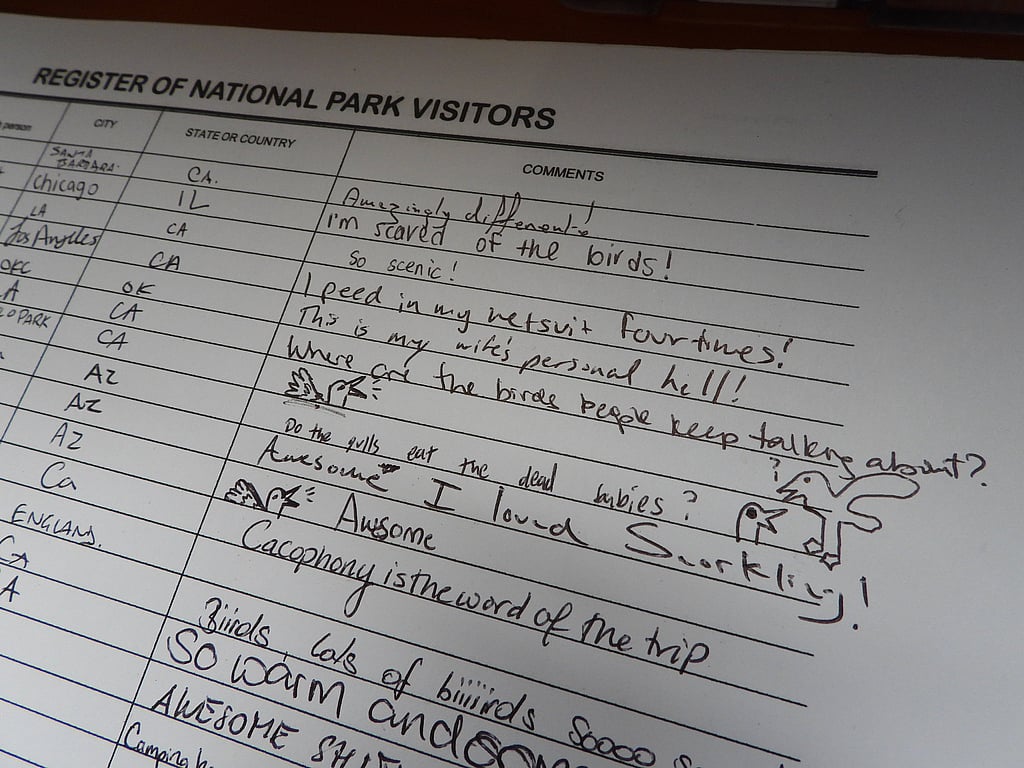 REGISTER OF NATIONAL PARK VISITORS
person CITY STATE OR COUNTRY COMMENTS
SANTA BARBARA CA. Amazingly different!
Chicago IL I'm scared of the birds!
LA CA So scenic!
Los Angeles CA I peed in my wetsuit four times!
OKC OK This is my wife's personal hell!
A CA Where are the birds people keep talking about?
PARK CA
AZ Do the gulls eat the dead babies? ?
AZ Awesome I loved Snorkling!
AZ Awesome
Ca Cacophony is the word of the trip
ENGLAND.
CA Biiirds, lots of biiiiirds Soooo
A So warm and
AWESOME
Camping